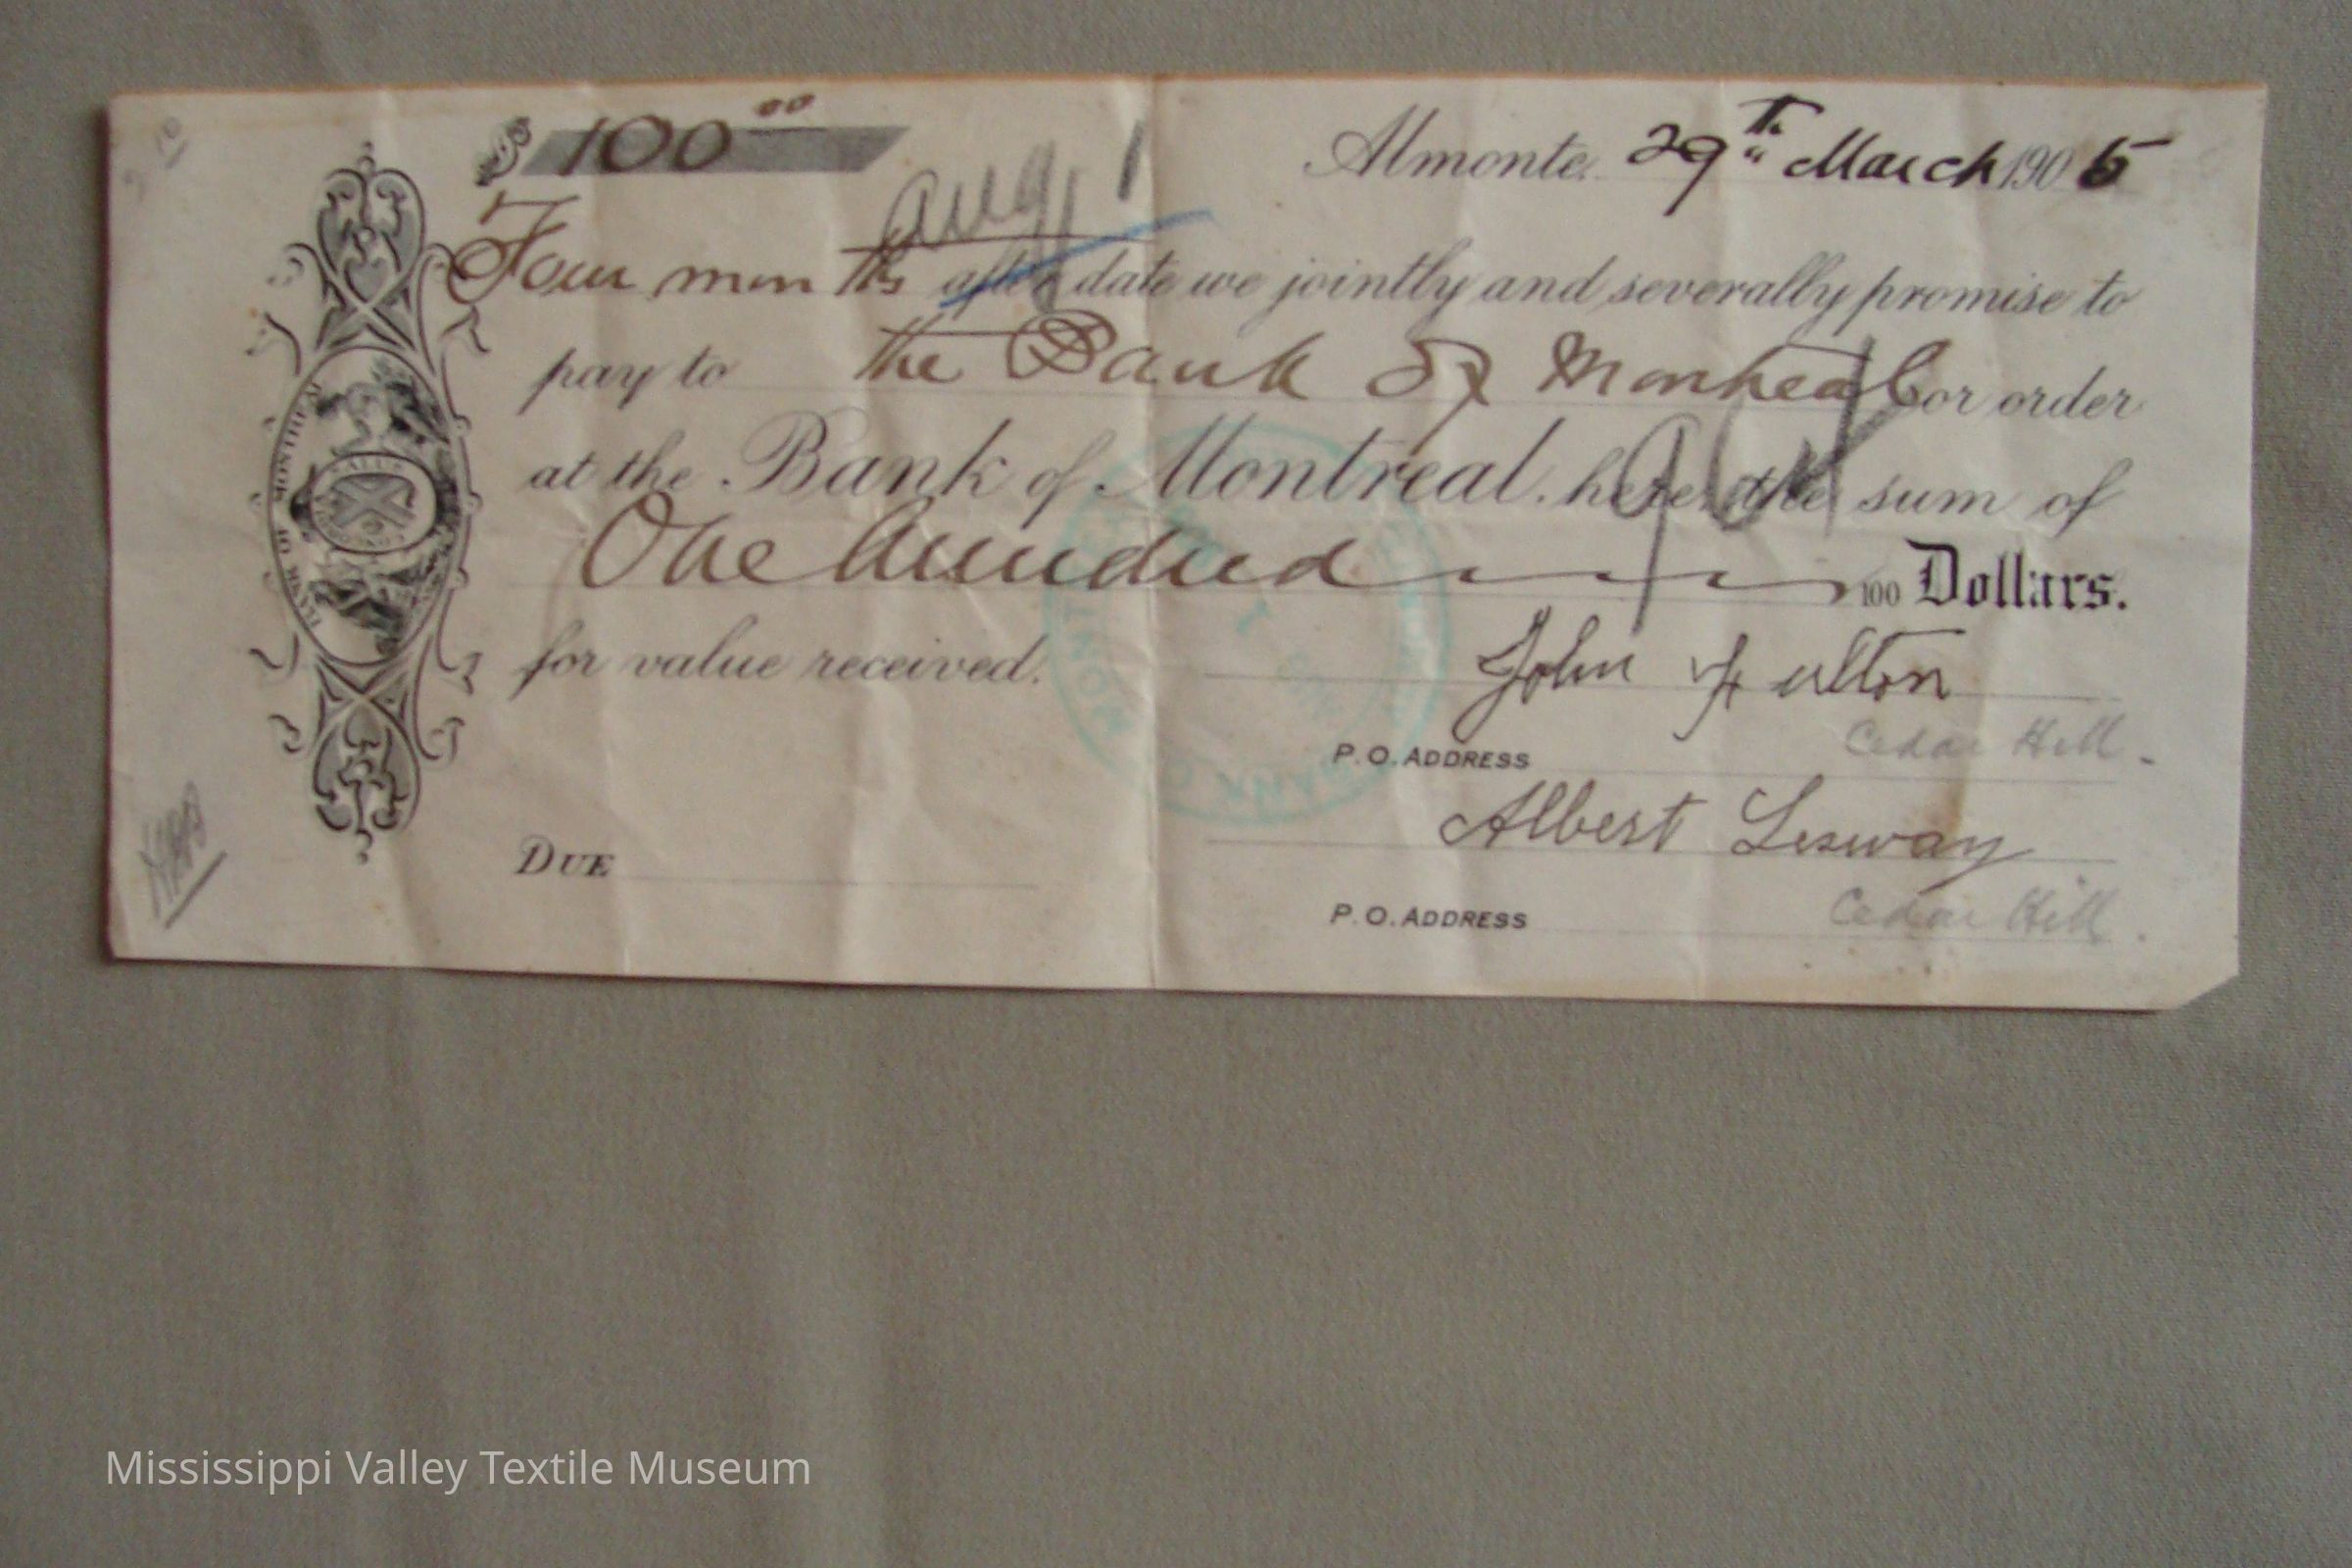 $ 100 00
Almonte, 29th March 1905
Aug 1
Four months after date we jointly and severally promise to
pay to the Bank of Montreal or order
at the Bank of Montreal here the sum of
One hundred 100 Dollars.
for value received. John Fulton
P.O. ADDRESS Cedar Hill.
Albert
DUE
P.O. ADDRESS Cedar Hill.
BANK OF MONTREAL
Mississippi Valley Textile Museum